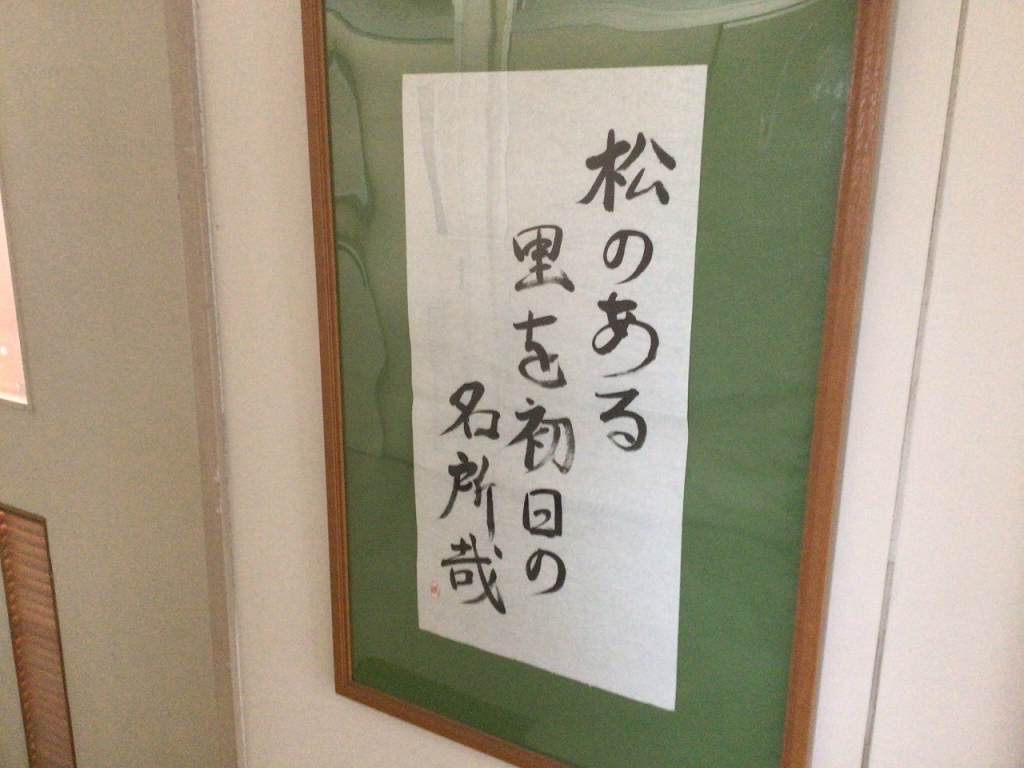 松のある
里を初日の
名所哉